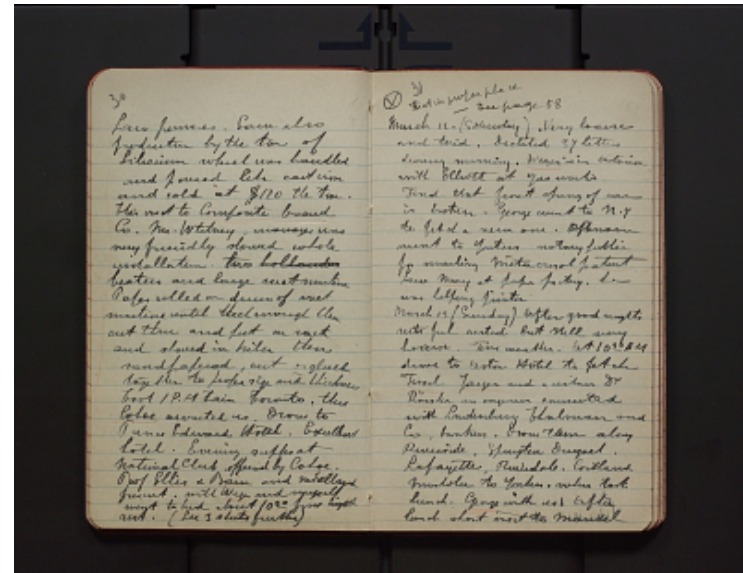 30
Saw furnaces. Saw also
production by the ton of
Silicium which was handled
and poured like cast iron
and sold at $120 the ton.
Then visit to Composite Board
Co. Mr. Whitney, manager was
very friendly showed whole
installation. two hollander
beaters and large wet machine
Paper rolled on drum of wet
machine until thick enough then
cut thru and put on
and stowed in kiln then
sandpapered, cut & glued
together to proper size and thickness
Took 1 P.M train Toronto, then
Cohoe awaited us. Drove to
Prince Edward Hotel. Excellent
hotel. Evening supper at
National Club offered by Cohoe.
Prof Ellis & Bain and
present. with and myself
went to bed about 10:30
rest. (See 3 sheets further)
31
Not in proper place
— See page 58
March 11. (Saturday) Very hoarse
and tired. Dictated 27 letters
during morning. Weger in
with Elliott at gas works
Find that front spring of car
is broken. George went to N.Y
to fetch a new one. Afternoon
went to Yonkers notary public
for mailing patent
Saw Mary at paper
was helping
March 12 (Sunday) After good nights
rest feel rested but still very
hoarse. Fine weather. At 10:30 AM
drove to Astor Hotel to fetch
Jaeger and Dr
an engineer connected
with Ladenburg Thalmann and
Co., bankers. Drove them along
Riverside, Spuyten Duyvil,
Lafayette, Riverdale, Cortland
to Yonkers, where took
lunch. George with us. After
lunch short visit to